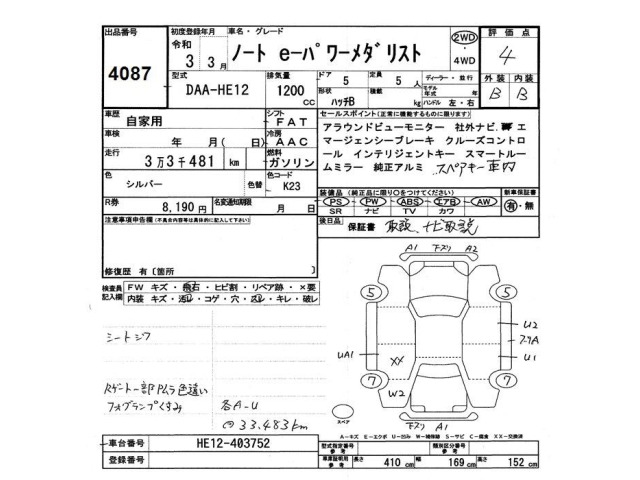 出品番号 4087
初度登録年月 令和 3 3月
車名・グレード ノート e-パワーメダリスト
2WD 4WD
評価点 4
型式 DAA-HE12
排気量 1200 cc
ドア 5
定員 5人
ディーラー・並行
形状 ハッチB
積載 kg
モデル年式 年
ハンドル 左・右
外装 B 内装 B
車歴 自家用
シフト FAT
車検 年 月 (日)
冷房 AAC
走行 3万3千481 km
燃料 ガソリン
色 シルバー 色替
色コード K23
R券 8,190円
名変通知期限 月 日
セールスポイント(正常に機能するものに限ります)
アラウンドビューモニター 社外ナビ エ
マージェンシーブレーキ クルーズコントロ
ール インテリジェントキー スマートルー
ムミラー 純正アルミ スペアキー車内
装備品(純正品に限り○をつけてください)
PS PW ABS エアB AW
SR ナビ TV カワ
新車保証書 有・無
後日品 保証書 取説、ナビ取説
注意事項申告欄(不具合内容等は具体的に記入して下さい)
修復歴 有〔箇所 〕
検査員記入欄
FW キズ・飛石・ヒビ割・リペア跡・×要
内装 キズ・汚レ・コゲ・穴・スレ・キレ・破レ
シートシワ
Rゲート一部Pムラ色違い
フォグランプくすみ
各A-U
@33.483km
A1 下スリ A2
5 5
U2
フタA
UA1
XX
U1
7 7
W2
下スリ A1
スペア
A-キズ E-エクボ U-凹み W-補修跡 S-サビ C-腐食 XX-交換済
車台番号 HE12-403752
登録番号
型式指定番号 参考
類別区分番号 参考
車庫証明用 参考 長さ 410cm 幅 169cm 高さ 152cm